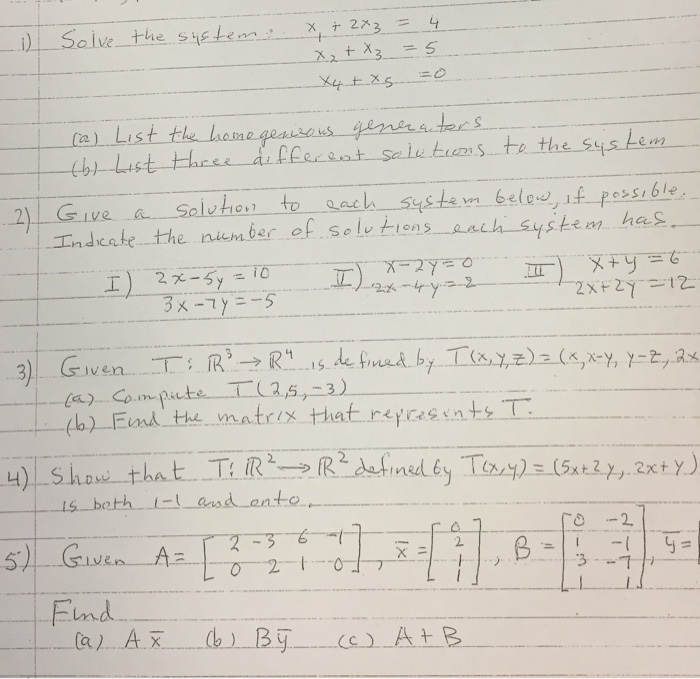 1) Solve the system: x₁ + 2x₃ = 4
x₂ + x₃ = 5
x₄ + x₅ = 0
(a) List the homogenous generators
(b) List three different solutions to the system
2) Give a solution to each system below, if possible.
Indicate the number of solutions each system has.
I) 2x-5y=10 II) x-2y=0 III) x+y=6
3x-7y=-5 2x-4y=2 2x+2y=12
3) Given T: ℝ³→ℝ⁴ is defined by T(x,y,z)=(x,x-y, y-z, 2x
(a) Compute T(2,5,-3)
(b) Find the matrix that represents T.
4) Show that T: ℝ²→ℝ² defined by T(x,y)=(5x+2y, 2x+y)
is both 1-1 and onto.
5) Given A= [2 -3 6 -1
0 2 1 0], x̄ = [0
2
1
1], B = [0 -2
1 -1
3 -7
1 1], ȳ =
Find
(a) Ax̄ (b) Bȳ (c) A+B